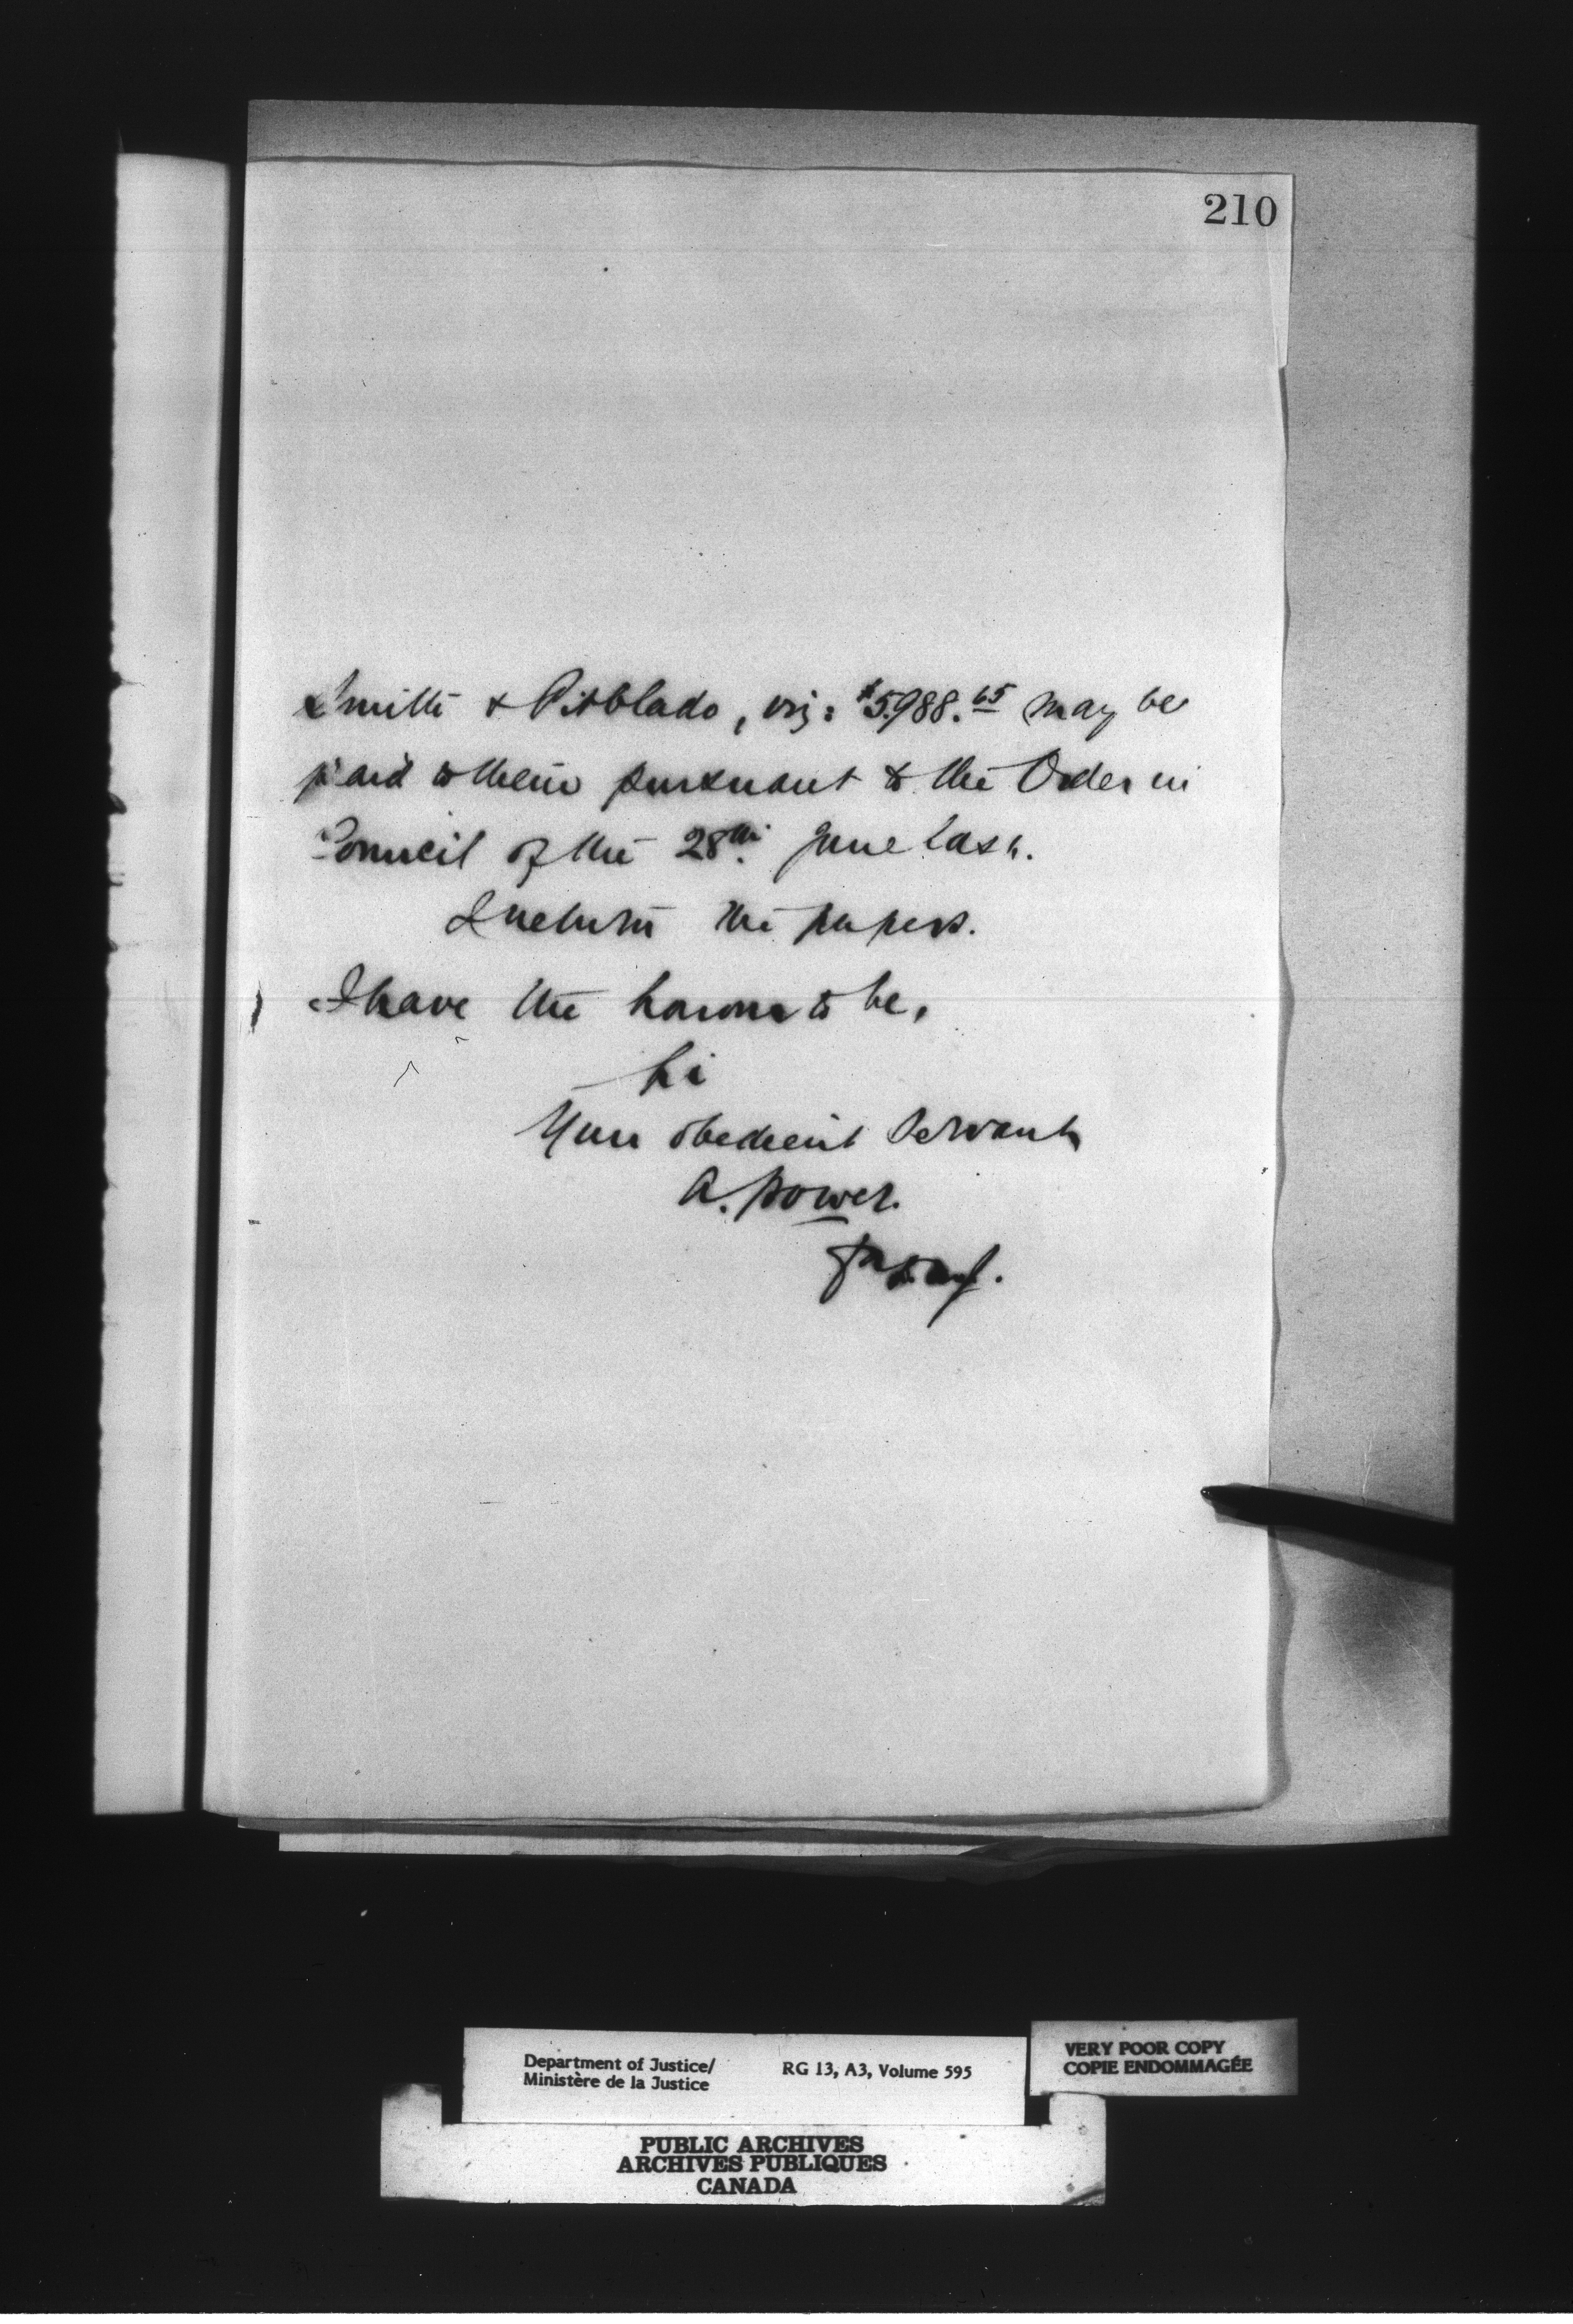 210
Smith & Pitblado, viz: $5988.65 may be
paid to them pursuant to the Order in
Council of the 28th. June last.
I return the papers.
I have the honour to be,
Sir
Your obedient Servant
A. Power.
Department of Justice/
Ministère de la Justice
RG 13, A3, Volume 595
VERY POOR COPY
COPIE ENDOMMAGÉE
PUBLIC ARCHIVES
ARCHIVES PUBLIQUES
CANADA